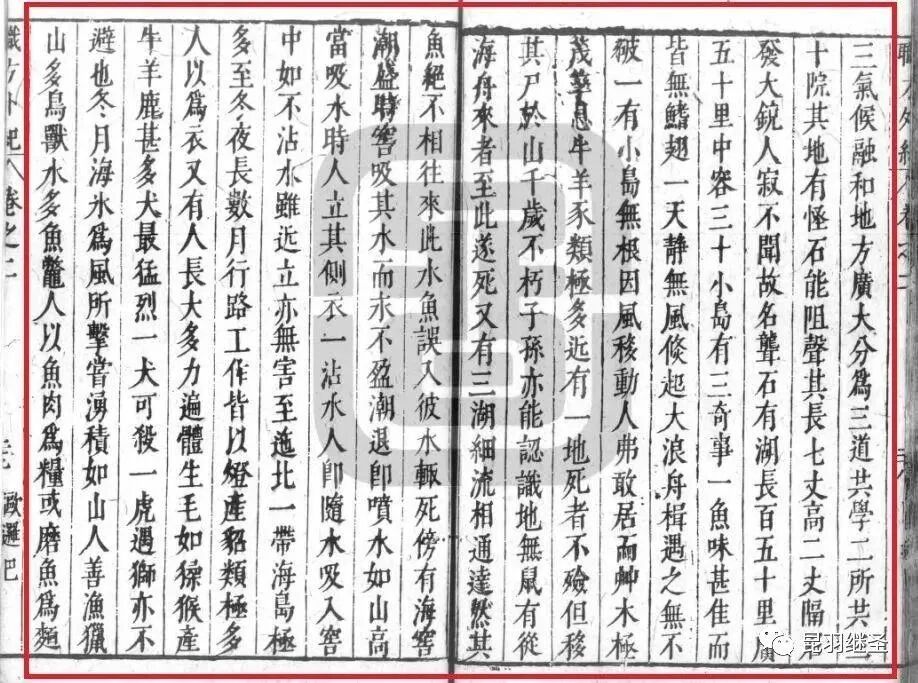 三氣候融和地方廣大分爲三道共學二所共
十院其地有怪石能阻聲其長七丈高二丈隔
發大銃人寂不聞故名聾石有湖長百五十里廣
五十里中容三十小島有三奇事一魚味甚佳而
皆無鰭翅一天静無風倐起大浪舟楫遇之無不
破一有小島無根因風移動人弗敢居而艸木極
茂華息牛羊豕類極多近有一地死者不殮但移
其尸於山千歲不朽子孫亦能認識地無鼠有從
海舟來者至此遂死又有三湖細流相通達然其
魚絕不相往來此水魚誤入彼水輙死傍有海窖
潮盛時窖吸其水而永不盈潮退卽噴水如山高
當吸水時人立其側衣一沾水人卽隨水吸入窖
中如不沾水雖近立亦無害至迤北一帶海島極
多至冬夜長數月行路工作皆以燈產貂類極多
人以爲衣又有人長大多力遍體生毛如猱猴產
牛羊鹿甚多犬最猛烈一犬可殺一虎遇獅亦不
避也冬月海氷爲風所擊嘗湧積如山人善漁獵
山多鳥獸水多魚鼈人以魚肉爲糧或磨魚爲麵
職方外紀 卷之二 歐邏巴
昆羽继圣